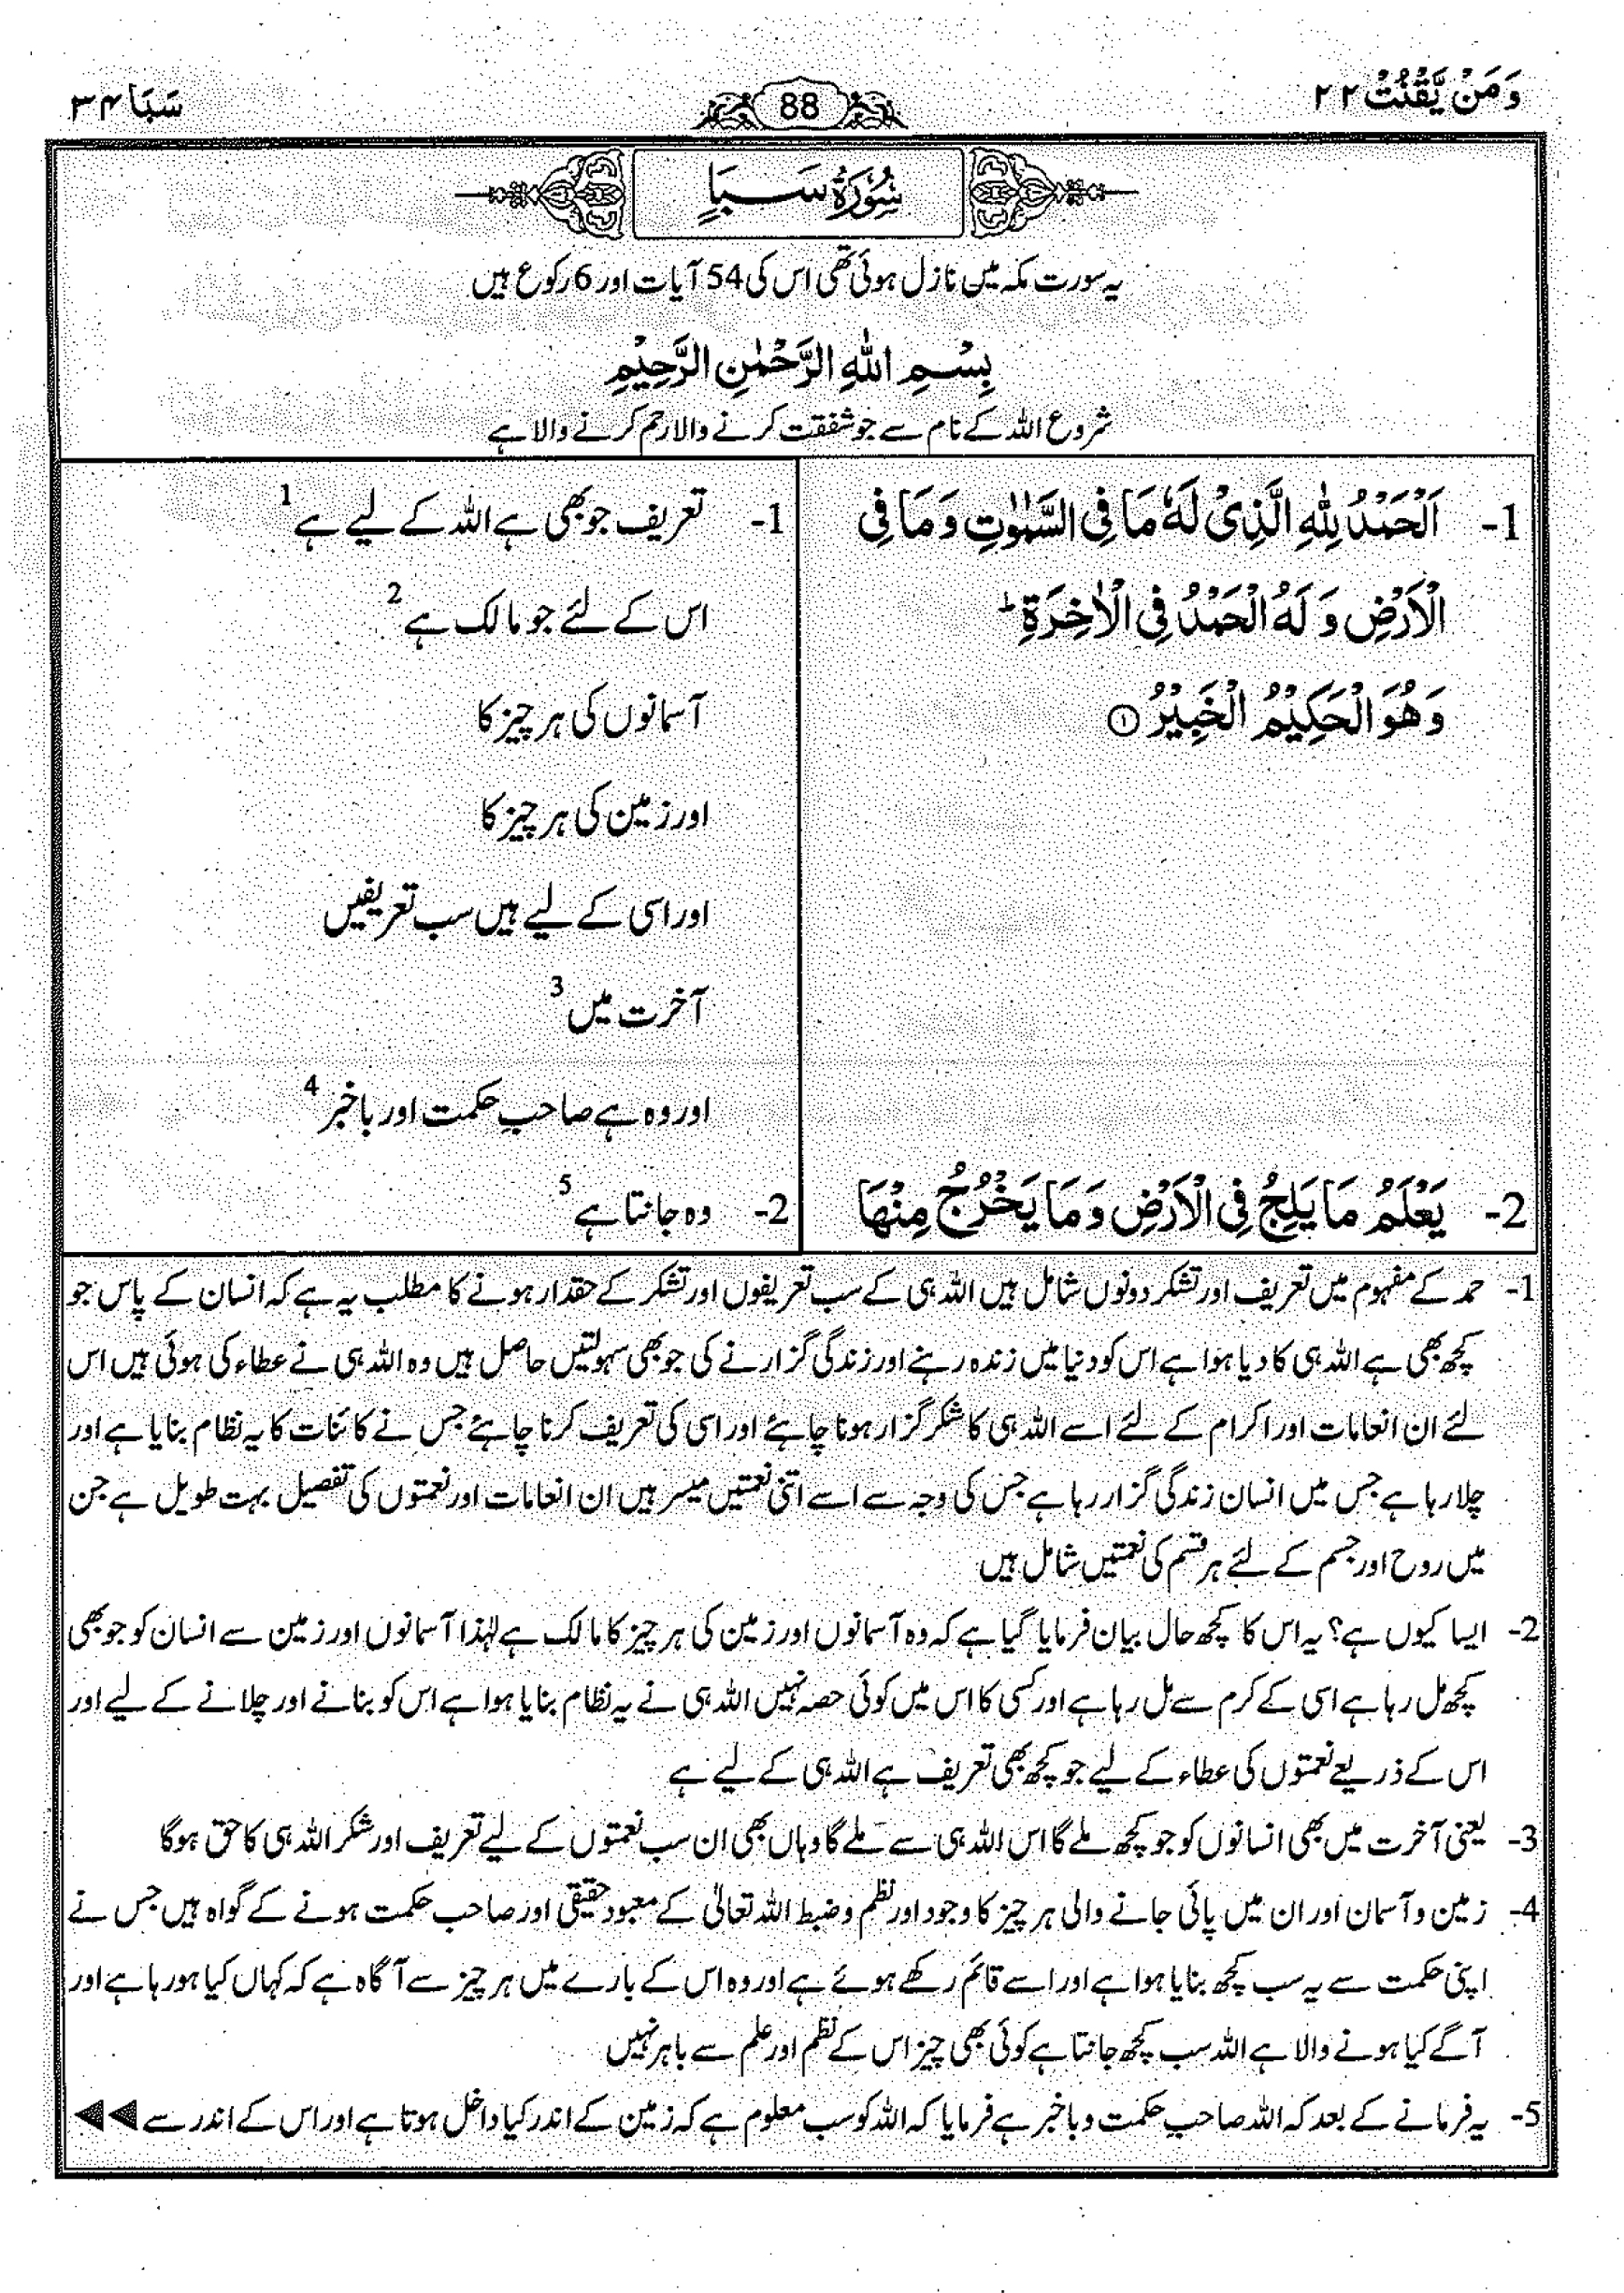 وَمَنْ يَّقْنُتْ ۲۲
88
سَبَا ۳۴
سُوْرَةُ سَبَاٍ
یہ سورت مکہ میں نازل ہوئی تھی اس کی 54 آیات اور 6 رکوع ہیں
بِسْمِ اللّٰهِ الرَّحْمٰنِ الرَّحِيْمِ
شروع اللہ کے نام سے جو شفقت کرنے والا رحم کرنے والا ہے
1- اَلْحَمْدُ لِلّٰهِ الَّذِىْ لَهٗ مَا فِى السَّمٰوٰتِ وَ مَا فِى
الْاَرْضِ وَ لَهُ الْحَمْدُ فِى الْاٰخِرَةِ ؕ
وَ هُوَ الْحَكِيْمُ الْخَبِيْرُ ۝۱
2- يَعْلَمُ مَا يَلِجُ فِى الْاَرْضِ وَ مَا يَخْرُجُ مِنْهَا
1- تعریف جو بھی ہے اللہ کے لیے ہے 1
اس کے لئے جو مالک ہے 2
آسمانوں کی ہر چیز کا
اور زمین کی ہر چیز کا
اور اسی کے لیے ہیں سب تعریفیں
آخرت میں 3
اور وہ ہے صاحبِ حکمت اور باخبر 4
2- وہ جانتا ہے 5
1- حمد کے مفہوم میں تعریف اور تشکر دونوں شامل ہیں اللہ ہی کے سب تعریفوں اور تشکر کے حقدار ہونے کا مطلب یہ ہے کہ انسان کے پاس جو
کچھ بھی ہے اللہ ہی کا دیا ہوا ہے اس کو دنیا میں زندہ رہنے اور زندگی گزارنے کی جو بھی سہولتیں حاصل ہیں وہ اللہ ہی نے عطاء کی ہوئی ہیں اس
لئے ان انعامات اور اکرام کے لئے اسے اللہ ہی کا شکر گزار ہونا چاہئے اور اسی کی تعریف کرنا چاہئے جس نے کائنات کا یہ نظام بنایا ہے اور
چلا رہا ہے جس میں انسان زندگی گزار رہا ہے جس کی وجہ سے اسے اتنی نعمتیں میسر ہیں ان انعامات اور نعمتوں کی تفصیل بہت طویل ہے جن
میں روح اور جسم کے لئے ہر قسم کی نعمتیں شامل ہیں
2- ایسا کیوں ہے؟ یہ اس کا کچھ حال بیان فرمایا گیا ہے کہ وہ آسمانوں اور زمین کی ہر چیز کا مالک ہے لہٰذا آسمانوں اور زمین سے انسان کو جو بھی
کچھ مل رہا ہے اسی کے کرم سے مل رہا ہے اور کسی کا اس میں کوئی حصہ نہیں اللہ ہی نے یہ نظام بنایا ہوا ہے اس کو بنانے اور چلانے کے لیے اور
اس کے ذریعے نعمتوں کی عطاء کے لیے جو کچھ بھی تعریف ہے اللہ ہی کے لیے ہے
3- یعنی آخرت میں بھی انسانوں کو جو کچھ ملے گا اس اللہ ہی سے ملے گا وہاں بھی ان سب نعمتوں کے لیے تعریف اور شکر اللہ ہی کا حق ہوگا
4- زمین و آسمان اور ان میں پائی جانے والی ہر چیز کا وجود اور نظم و ضبط اللہ تعالیٰ کے معبودِ حقیقی اور صاحب حکمت ہونے کے گواہ ہیں جس نے
اپنی حکمت سے یہ سب کچھ بنایا ہوا ہے اور اسے قائم رکھے ہوئے ہے اور وہ اس کے بارے میں ہر چیز سے آگاہ ہے کہ کہاں کیا ہو رہا ہے اور
آگے کیا ہونے والا ہے اللہ سب کچھ جانتا ہے کوئی بھی چیز اس کے نظم اور علم سے باہر نہیں
5- یہ فرمانے کے بعد کہ اللہ صاحبِ حکمت و باخبر ہے فرمایا کہ اللہ کو سب معلوم ہے کہ زمین کے اندر کیا داخل ہوتا ہے اور اس کے اندر سے ◀◀